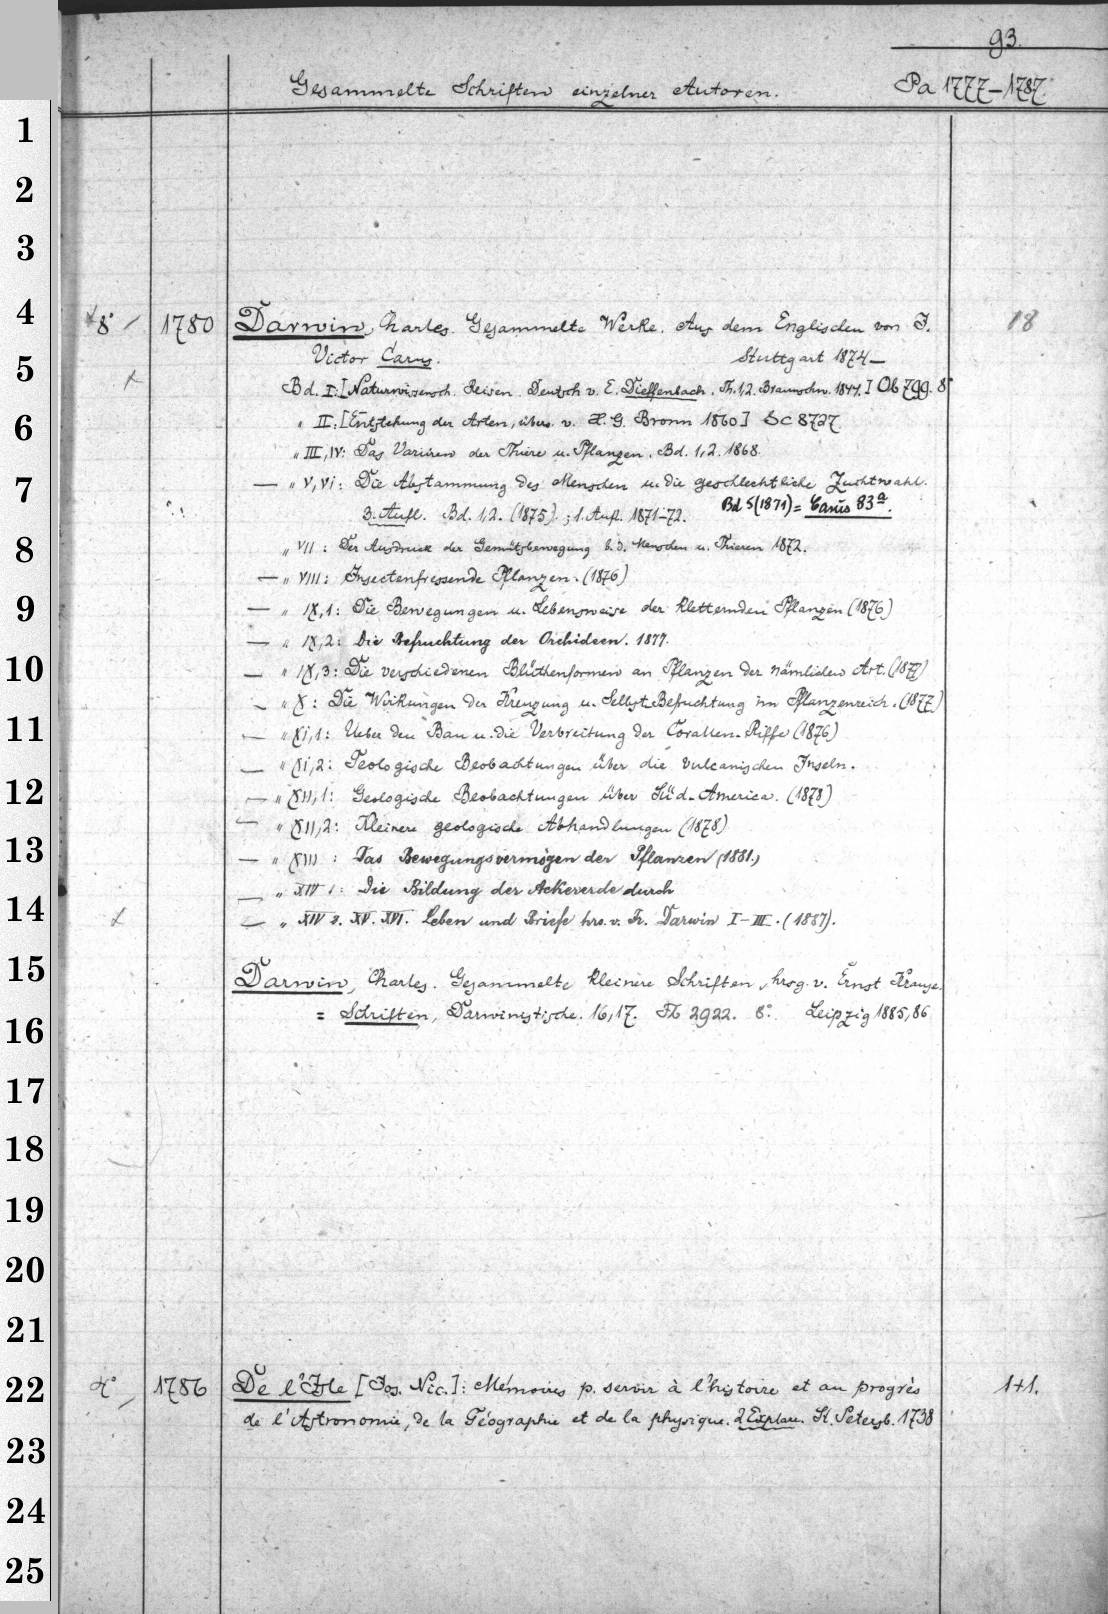 93.
Gesammelte Schriften einzelner Autoren. Pa 1777–1787
1
2
3
4 8° 1780 Darwin, Charles. Gesammelte Werke. Aus dem Englischen von J. 18
Victor Carus. Stuttgart 1874–
5 Bd. I: [Naturwissensch. Reisen. Deutsch v. E. Dieffenbach. Th. 1,2. Braunschw. 1844.] Ob 799. 8°
6 " II: [Entstehung der Arten, übers. v. H. G. Bronn 1860] Sc 8727
" III, IV: Das Variiren der Thiere u. Pflanzen. Bd. 1, 2. 1868.
7 — " V, VI: Die Abstammung des Menschen u. die geschlechtliche Zuchtwahl.
3. Aufl. Bd. 1,2. (1875). ; 1. Aufl. 1871–72. Bd 5 (1871) = Carus 83a.
8 " VII: Der Ausdruck der Gemütsbewegung b. d. Menschen u. Thieren 1872.
— " VIII: Insectenfressende Pflanzen. (1876)
9 — " IX,1: Die Bewegungen u. Lebensweise der kletternden Pflanzen (1876)
— " IX,2: Die Befruchtung der Orchideen. 1877.
10 — " IX,3: Die verschiedenen Blüthenformen an Pflanzen der nämlichen Art. (1877)
— " X: Die Wirkungen der Kreuzung u. Selbst-Befruchtung im Pflanzenreich. (1877)
11 — " XI,1: Ueber den Bau u. die Verbreitung der Corallen-Riffe (1876)
— " XI,2: Geologische Beobachtungen über die vulcanischen Inseln.
12 — " XII,1: Geologische Beobachtungen über Süd-America. (1878)
— " XII,2: Kleinere geologische Abhandlungen (1878)
13 — " XIII: Das Bewegungsvermögen der Pflanzen (1881.)
— " XIV 1: Die Bildung der Ackererde durch
14 — " XIV 2. XV. XVI. Leben und Briefe hrs. v. Fr. Darwin I–III. (1887).
15 Darwin, Charles. Gesammelte kleinere Schriften, hrsg. v. Ernst Krause.
16 = Schriften, Darwinistische. 16,17. 2922. 8°. Leipzig 1885,86
17
18
19
20
21
22 4° 1786 De l'Isle [Jos. Nic.]: Mémoires p. servir à l'histoire et au progrès 1+1.
de l'Astronomie, de la Géographie et de la physique. 2 Explare. St. Petersb. 1738
23
24
25